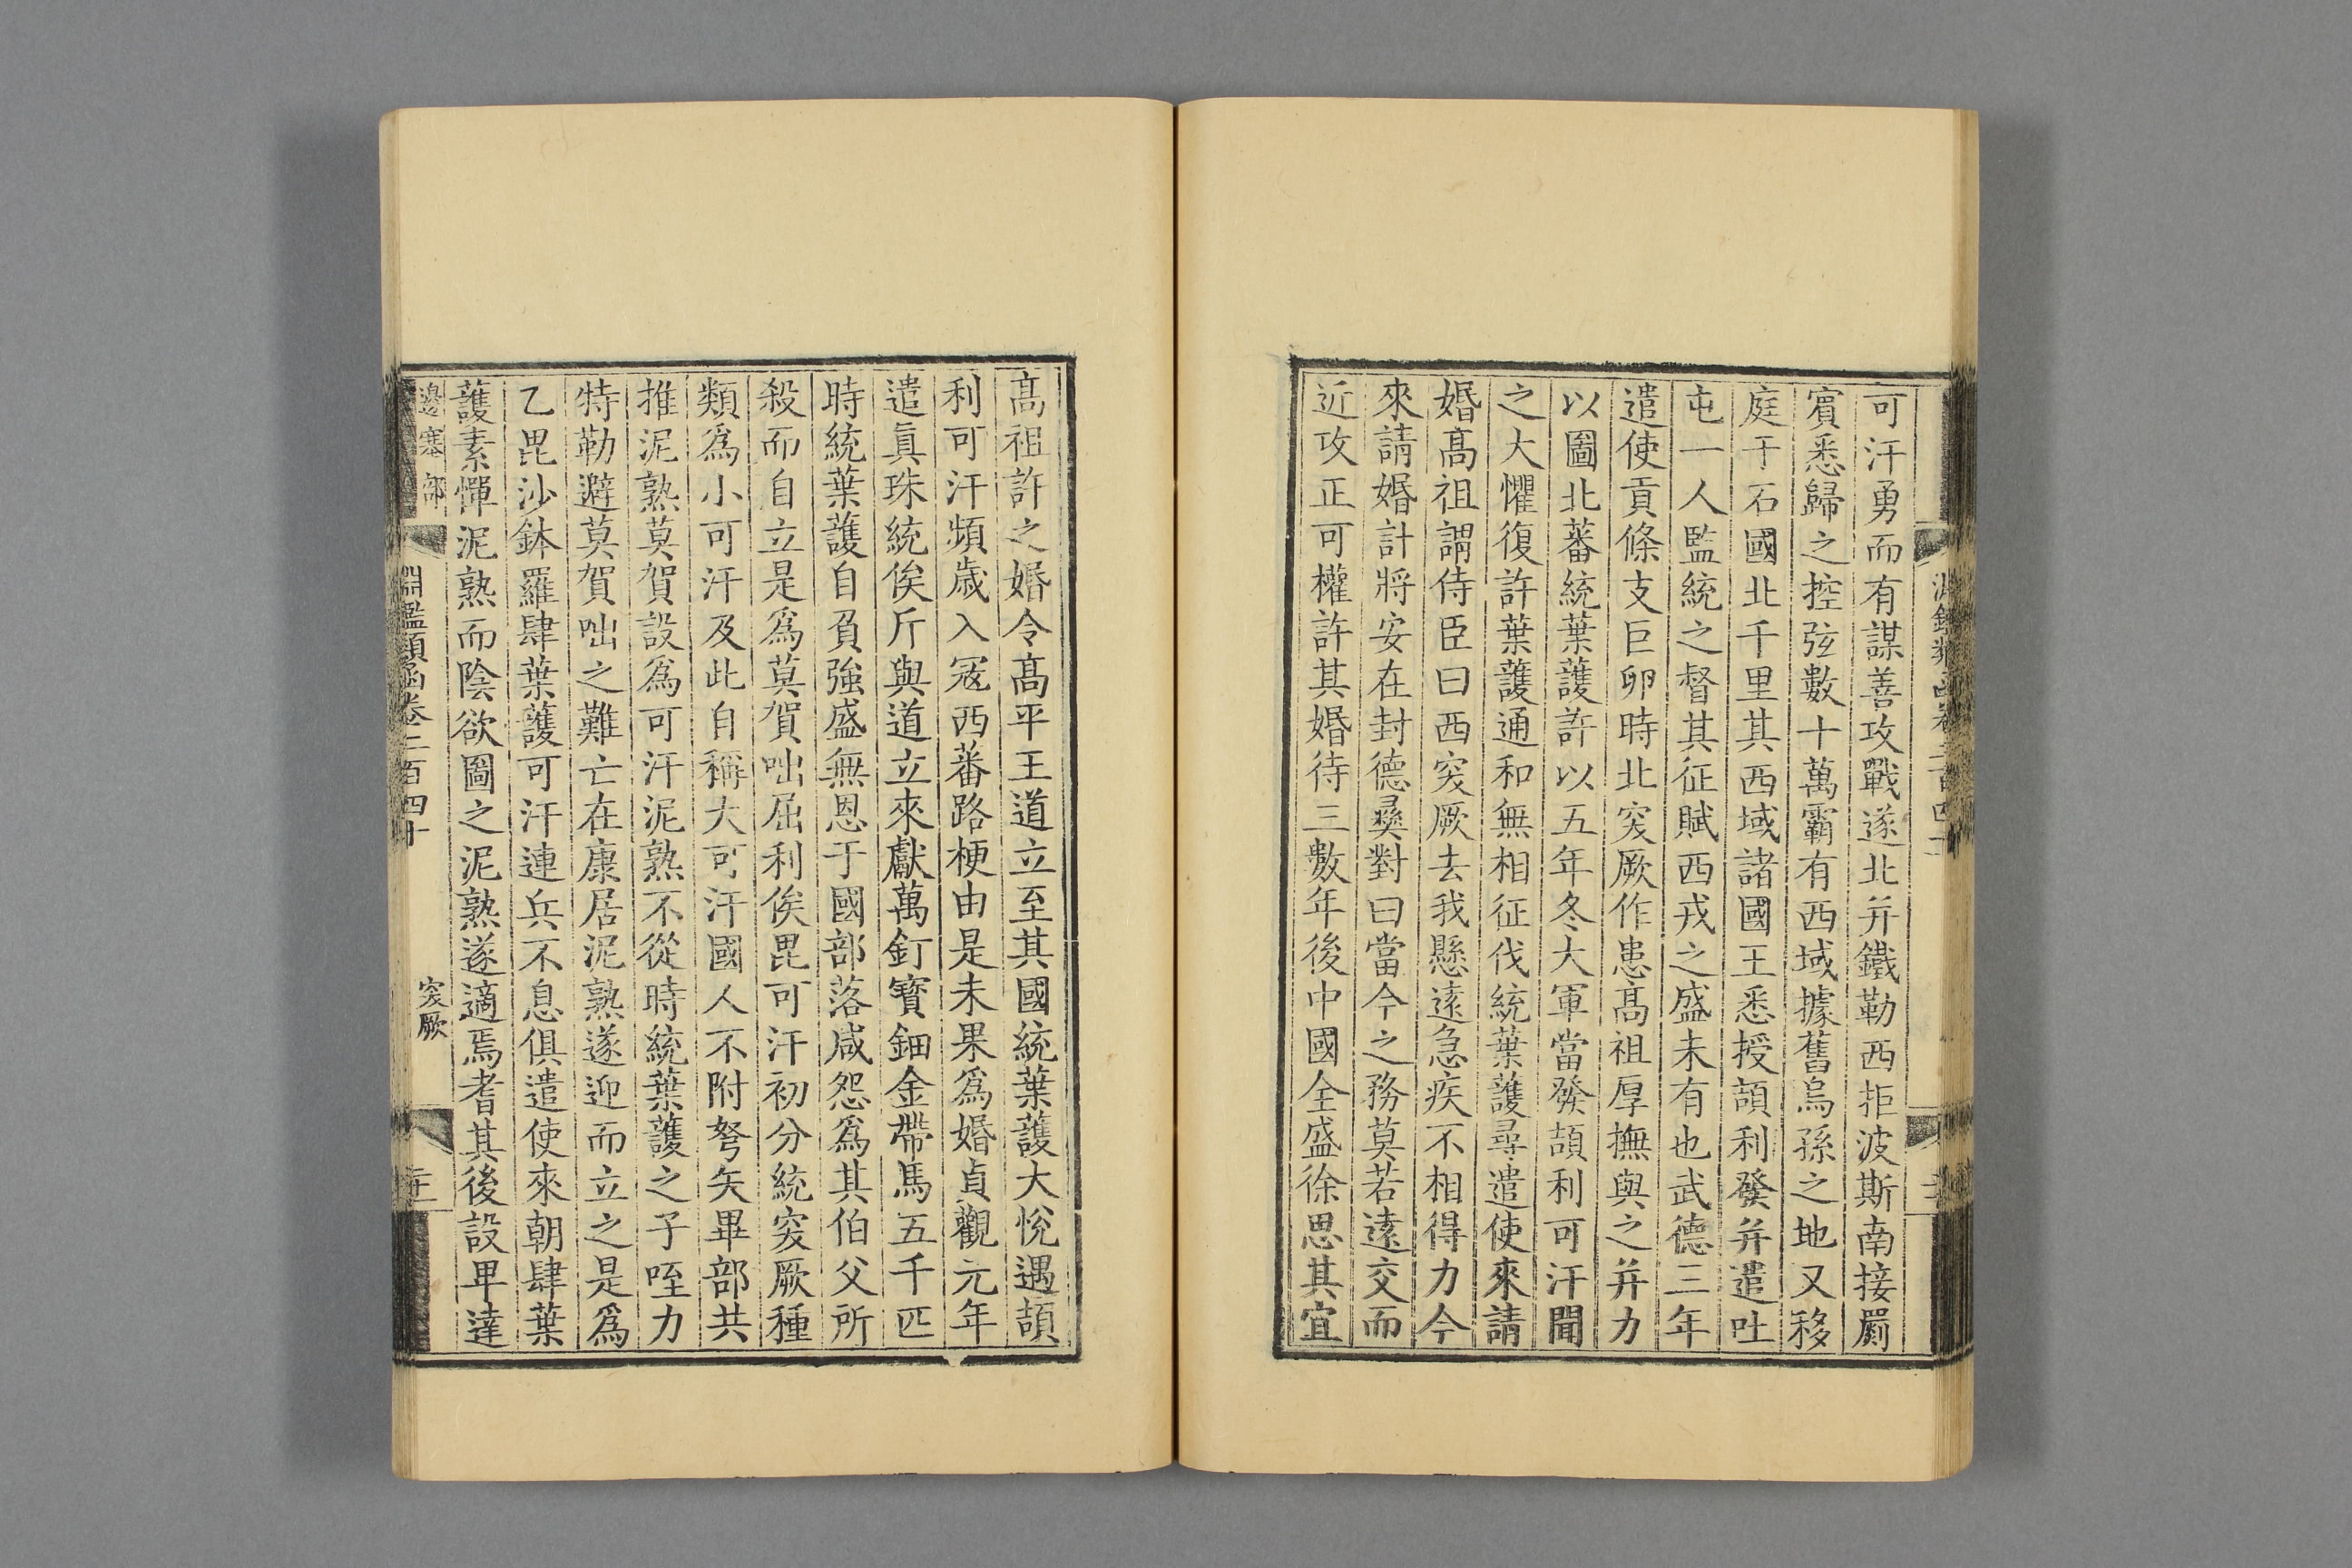 可汗勇而有謀善攻戰遂北并鐵勒西拒波斯南接罽
賓悉歸之控弦數十萬霸有西域據舊烏孫之地又移
庭于石國北千里其西域諸國王悉授頡利發并遣吐
屯一人監統之督其征賦西戎之盛未有也武德三年
遣使貢條支巨卵時北突厥作患高祖厚撫與之并力
以圖北蕃統葉護許以五年冬大軍當發頡利可汗聞
之大懼復許葉護通和無相征伐統葉護尋遣使來請
婚高祖謂侍臣曰西突厥去我懸遠急疾不相得力今
來請婚計將安在封德彝對曰當今之務莫若遠交而
近攻正可權許其婚待三數年後中國全盛徐思其宜
高祖許之婚令高平王道立至其國統葉護大悅遇頡
利可汗頻歲入冦西蕃路梗由是未果爲婚貞觀元年
遣眞珠統俟斤與道立來獻萬釘寳鈿金帶馬五千匹
時統葉護自負強盛無恩于國部落咸怨爲其伯父所
殺而自立是爲莫賀咄屈利俟毘可汗初分統突厥種
類爲小可汗及此自稱大可汗國人不附弩矢畢部共
推泥熟莫賀設爲可汗泥熟不從時統葉護之子咥力
特勒避莫賀咄之難亡在康居泥熟遂迎而立之是爲
乙毘沙鉢羅肆葉護可汗連兵不息俱遣使來朝肆葉
護素憚泥熟而陰欲圖之泥熟遂適焉耆其後設卑達
邊塞部 淵鑑類函卷二百四十 突厥